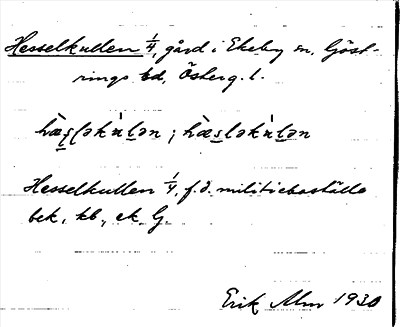 Hesselkullen 1/4, gård i Ekeby sn, Göst-
rings hd, Österg. l.
hæ̀s̱ləkù̀ḻən ; hæ̀s̱ləkù̀ḻən
Hesselkullen 1/4, f.d. militieboställe
bek., kb., ek. G.
Erik Alm 1930